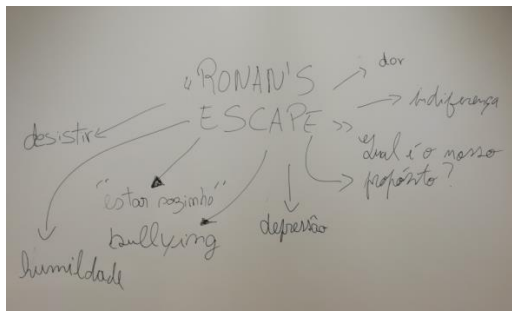 "RONAN'S
ESCAPE"
dor
indiferença
Qual é o nosso
propósito?
desistir
"estar sozinho"
bullying
depressão
humildade